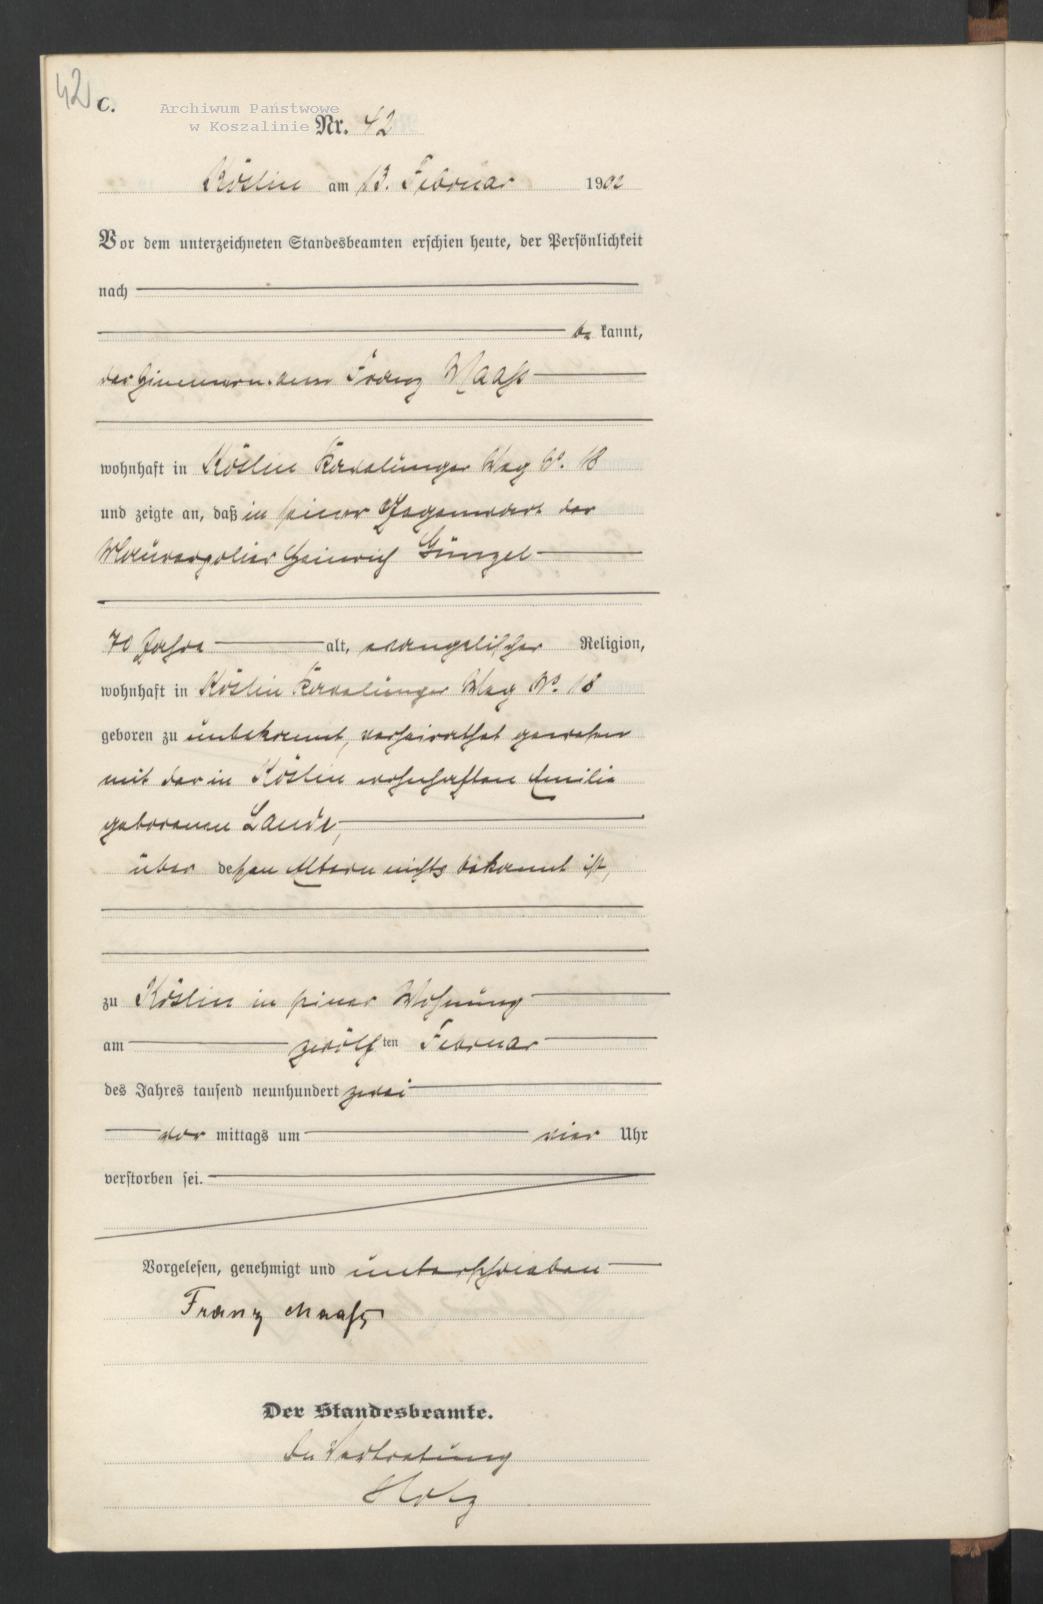 42
C.
Archiwum Państwowe
w Koszalinie
Nr. 42
Köslin am 13. Februar 1902
Vor dem unterzeichneten Standesbeamten erschien heute, der Persönlichkeit
nach
be kannt,
der Zimmermann Franz Maaß
wohnhaft in Köslin Weg No. 18
und zeigte an, daß in seiner Gegenwart der
Maurerpolier Heinrich Günzel
70 Jahre alt, evangelischer Religion,
wohnhaft in Köslin Weg No. 18
geboren zu unbekannt, verheirathet gewesen
mit der in Köslin wohnhaften Emilie
geborenen Lande,
über dessen Eltern nichts bekannt ist,
zu Köslin in seiner Wohnung
am zwölf ten Februar
des Jahres tausend neunhundert zwei
vor mittags um vier Uhr
verstorben sei.
Vorgelesen, genehmigt und unterschrieben
Franz Maaß
Der Standesbeamte.
In Vertretung